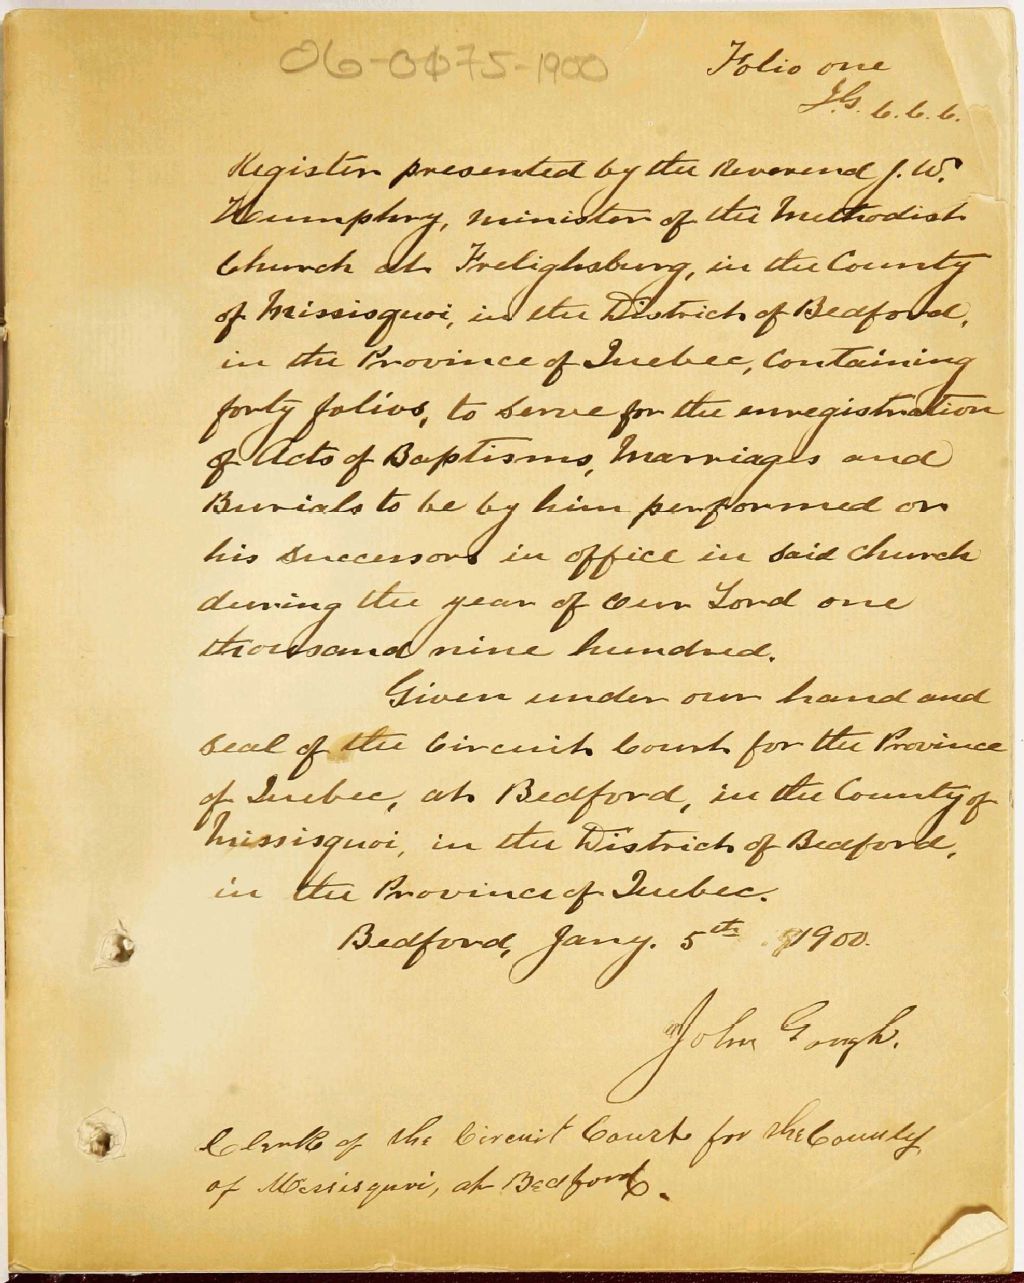 06-0075-1900
Folio one
J.G. C.C.C.
Register presented by the Reverend J. W.
Humphry, minister of the Methodist
Church at Frelighsburg, in the County
of Missisquoi, in the District of Bedford,
in the Province of Quebec, containing
forty folios, to serve for the enregistration
of Acts of Baptisms, Marriages and
Burials to be by him performed or
his successors in office in said Church
during the year of our Lord one
thousand nine hundred.
Given under our hand and
seal of the Circuit Court for the Province
of Quebec, at Bedford, in the County of
Missisquoi, in the District of Bedford,
in the Province of Quebec.
Bedford, Jany. 5th 1900.
John Gough.
Clerk of the Circuit Court for the County
of Missisquoi, at Bedford.